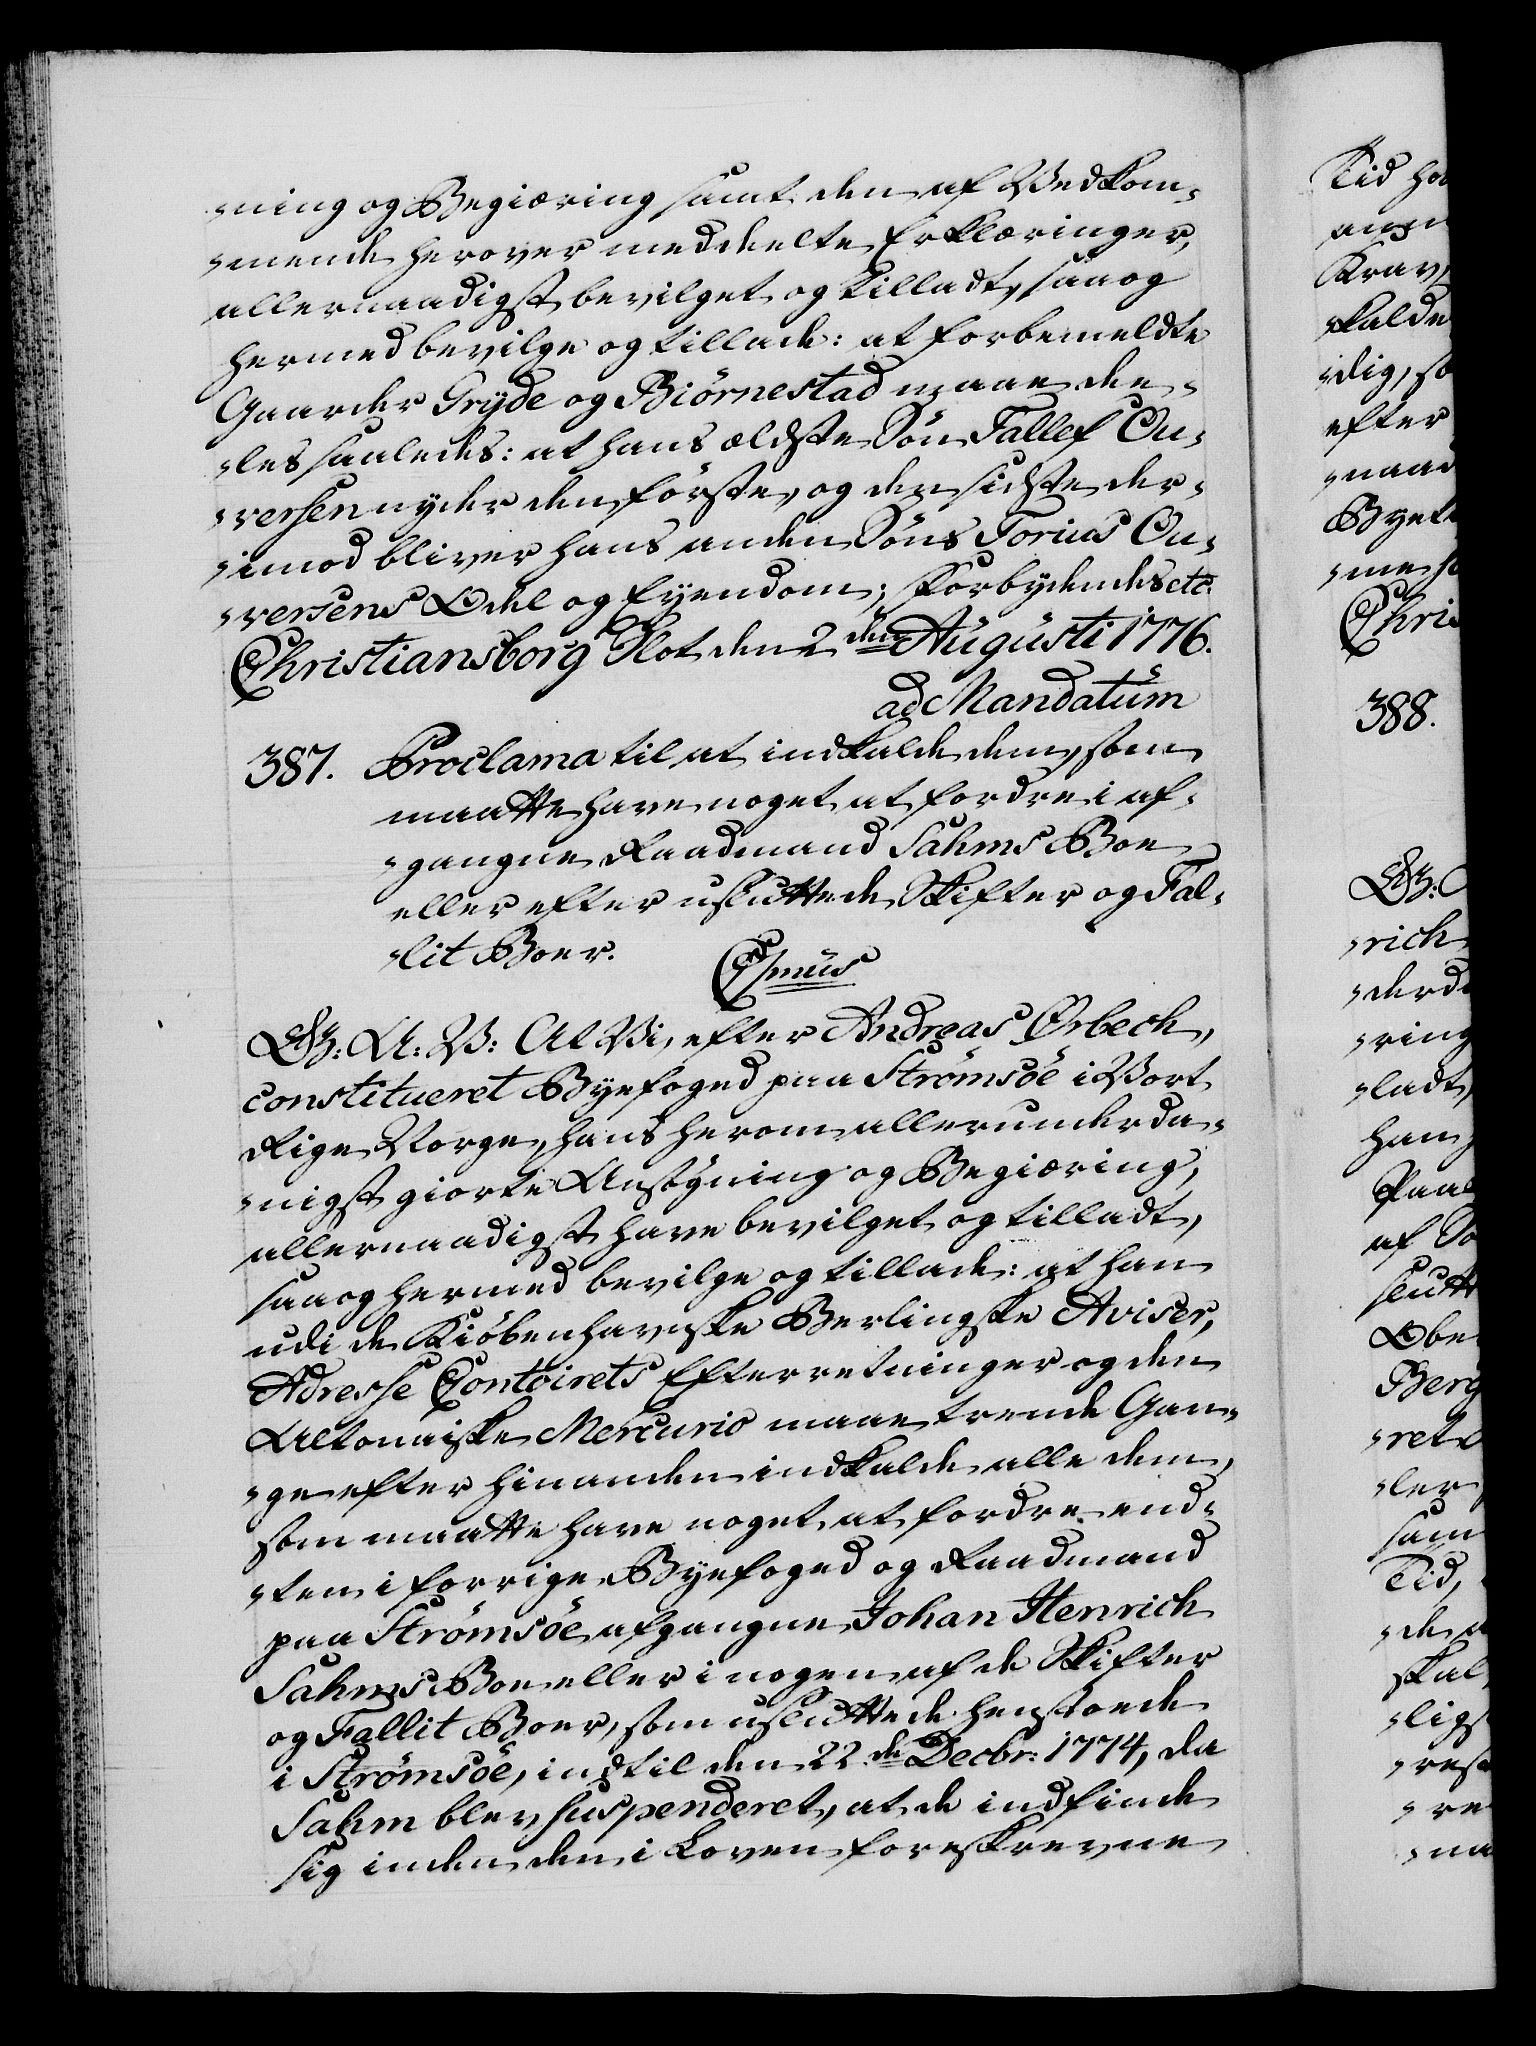 -ning og Begiæring samt den af Vedkom-
-mende herover meddeelte Erklæringer,
allernaadigst bevilget og tilladt, saa og
hermed bevilge og tillade: at forbemeldte
Gaarder Gryde og Biörnestad maae dee-
-les saaledes: at hans ældste Sön Tallef On-
-versen nyder den förste, og den sidste der-
-imod bliver hans anden Söns Torius On-
-versens Odel og Eyendom; Forbydendes etc.
Christiansborg Slot den 2den Augusti 1776.
ad Mandatum
387. Proclama til at indkalde dem, som
maatte have noget at fordre i af-
-gangne Raadmand Sahms Boe
eller efter usluttede Skifter og Fal-
-lit Boer.
C 7mus
G: A: V: At Vi, efter Andreas Ørbech,
constitueret Byefoged paa Strømsöe i Vort
Rige Norge, hans herom allerunderda-
-nigst giorte Ansögning og Begiæring,
allernaadigst have bevilget og tilladt,
saa og hermed bevilge og tillade: at han
udi de Kiöbenhavnske Berlingske Aviser,
Adresse Contoirets Efterretninger og den
Altonaiske Mercurio maae trende Gan-
-ge efter hinanden indkalde alle dem,
som maatte have noget at fordre end-
-ten i forrige Byefoged og Raadmand
paa Strömsöe afgangne Johan Henrich
Sahms Boe eller i nogen af de Skifter
og Fallit Boer, som usluttede henstoede
i Strømsöe, indtil den 22de Decbr: 1774, da
Sahm blev suspenderet, at de indfinde
sig inden den i Loven foreskrevne
Tid
Krav,
efter
388.
-rich
-ring
-ladt,
af
Tid,